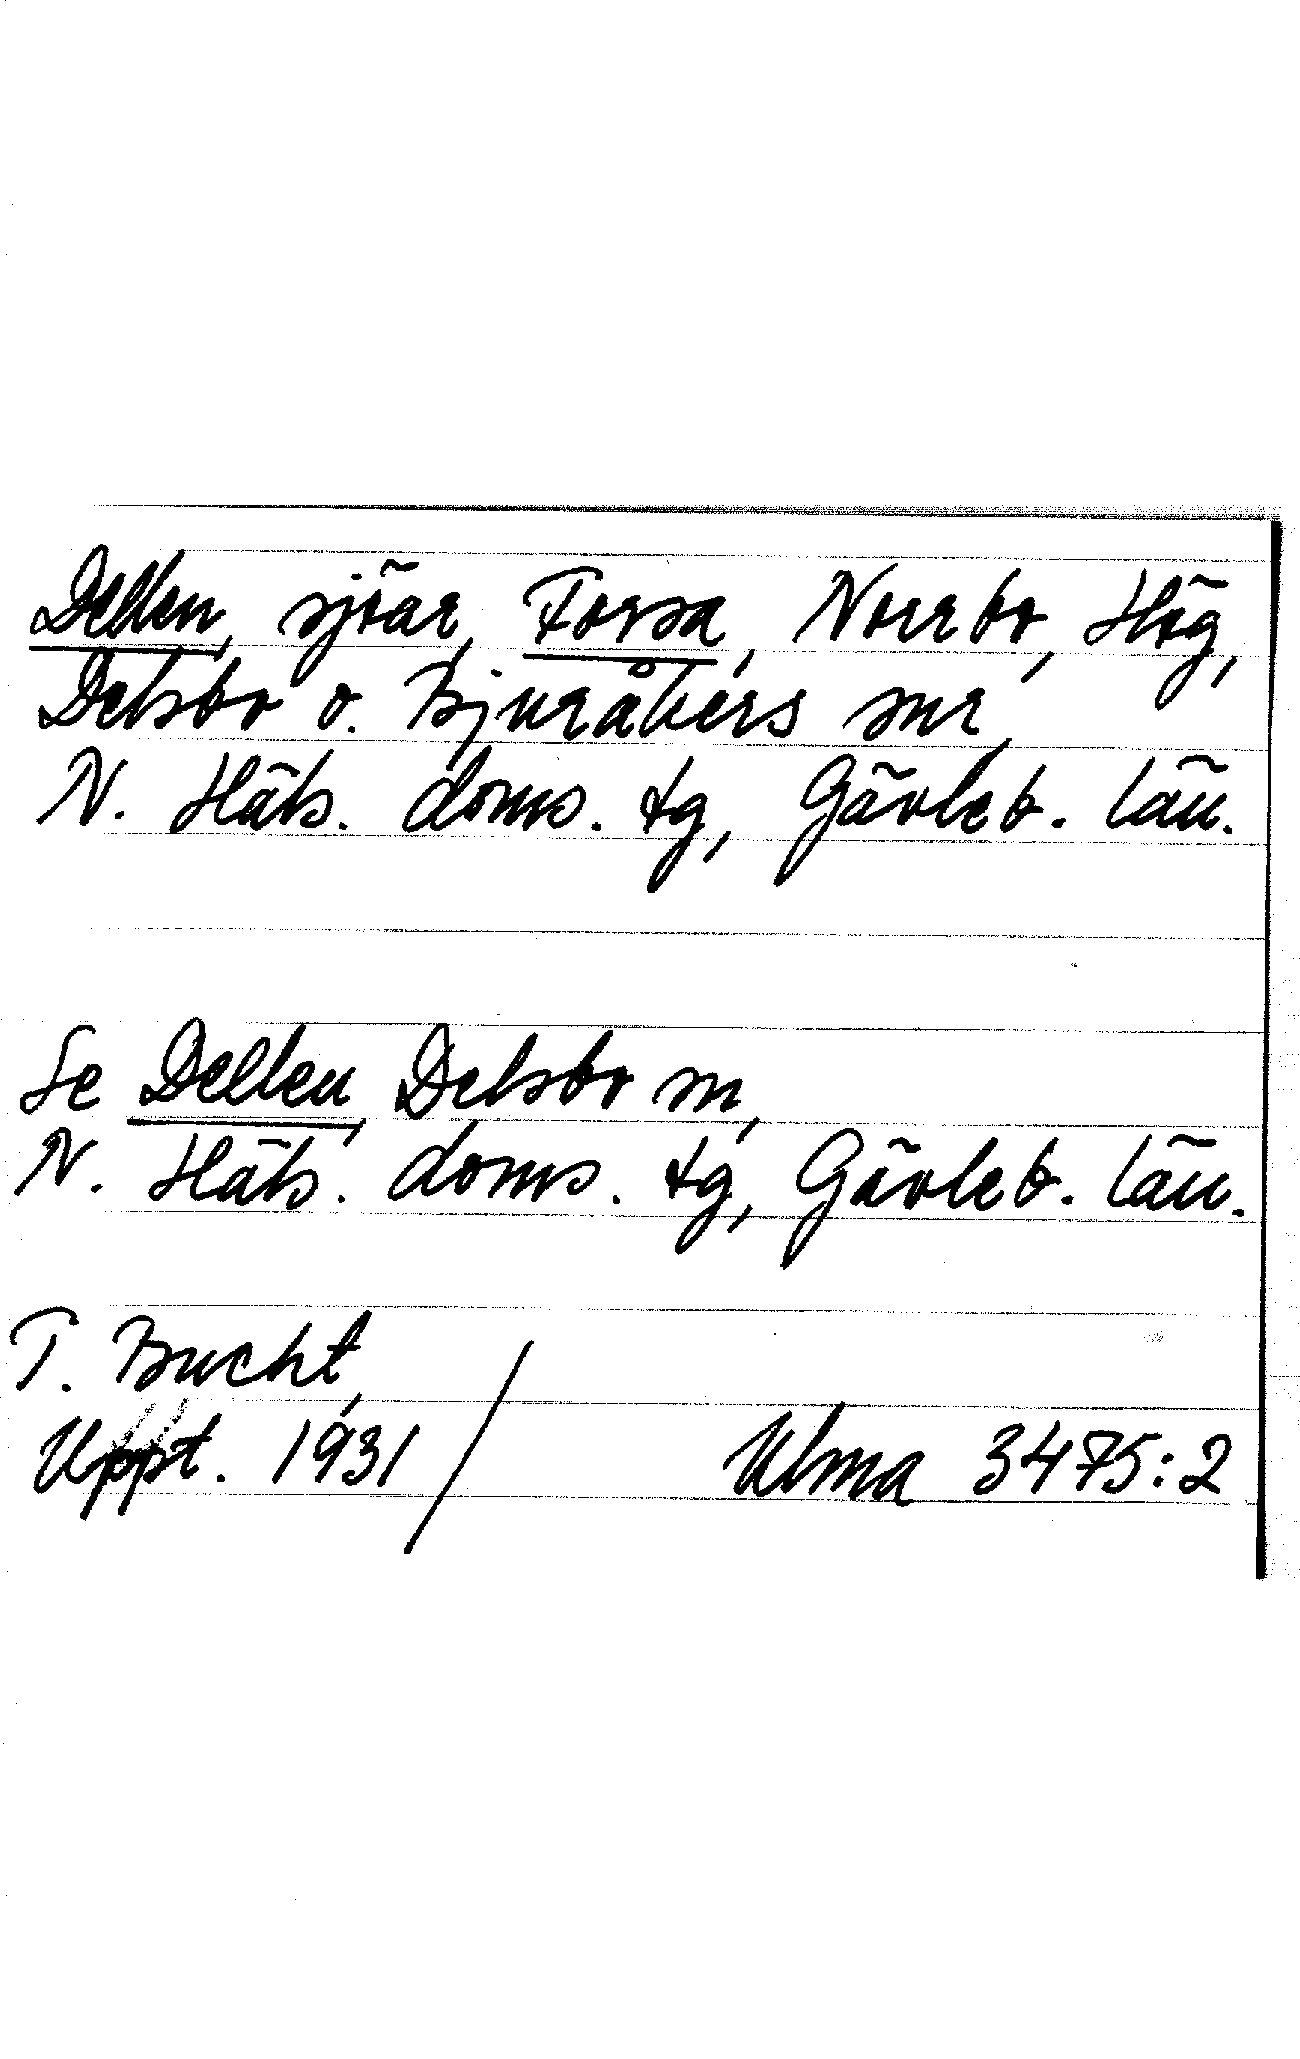 Dellen, sjöar, Forsa, Norrbo, Hög,
Delsbo o. Bjuråkers snr,
N. Häls. doms. tg, Gävleb. län.
Se Dellen, Delsbo sn,
N. Häls. doms. tg, Gävleb. län.
T. Bucht,
Uppt. 1931 / Ulma 3475:2